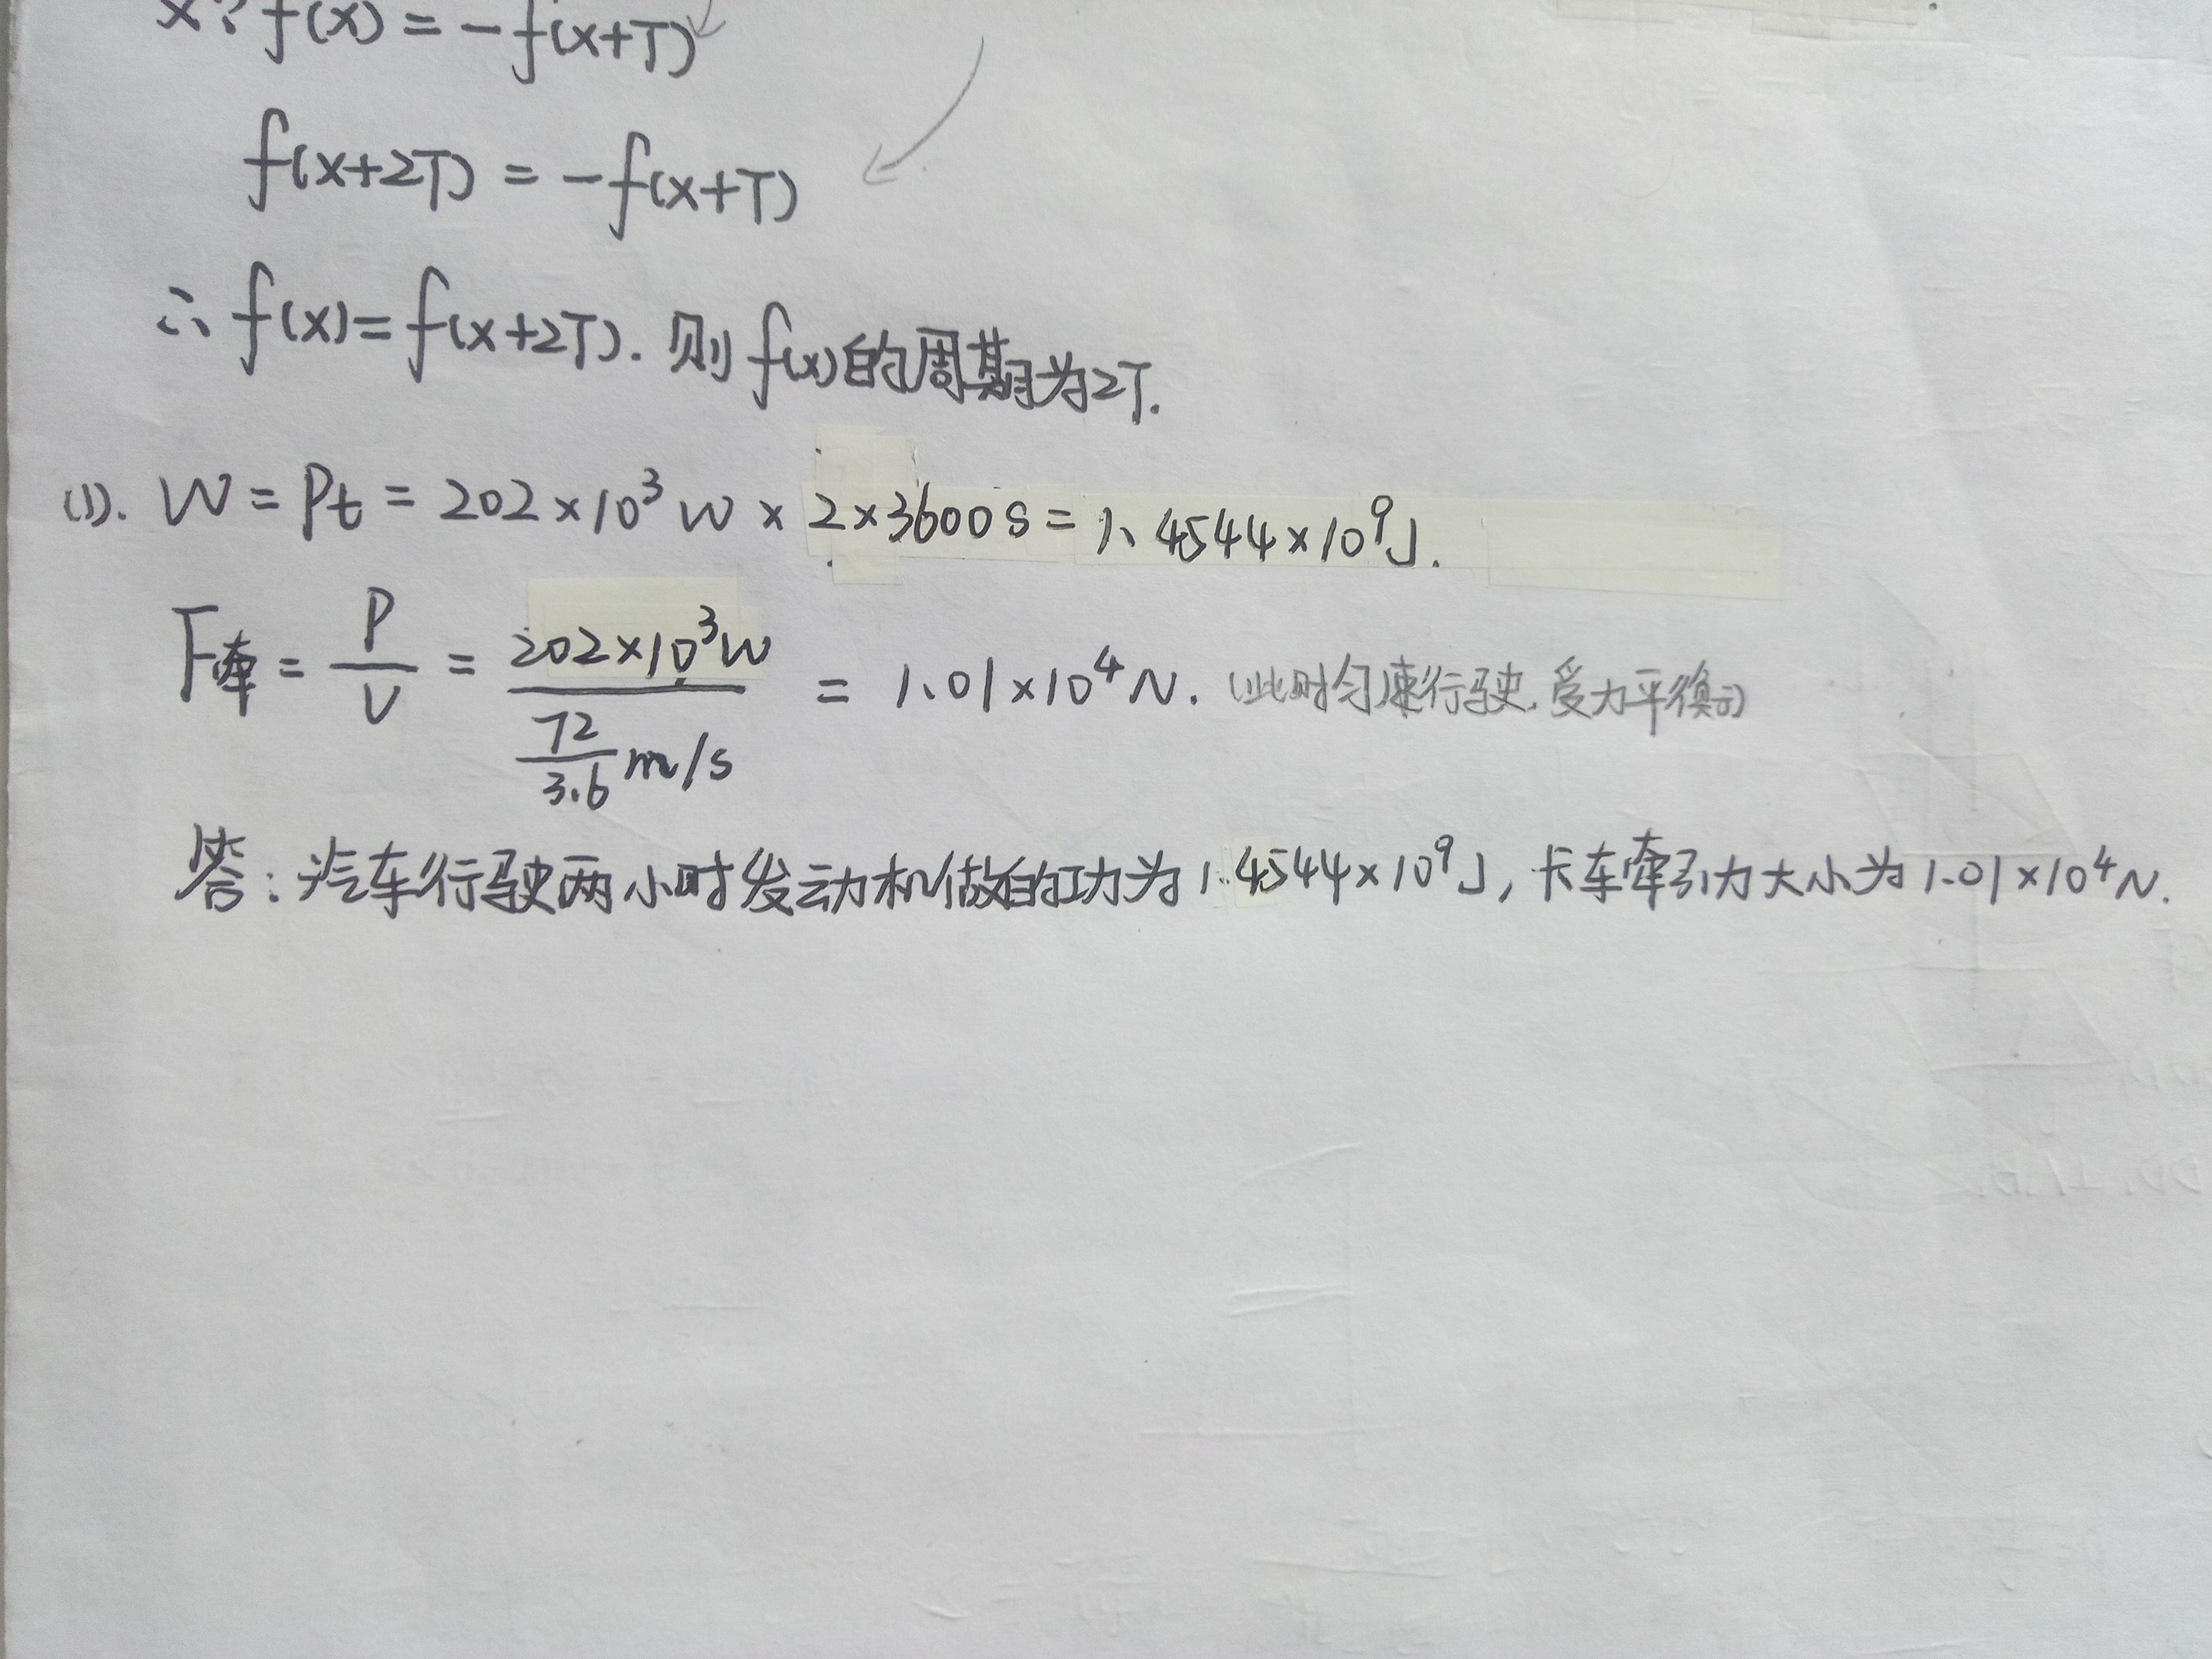 x? f(x) = -f(x+T)
f(x+2T) = -f(x+T)
∴ f(x) = f(x+2T). 则 f(x)的周期为2T.
(1). W = Pt = 202×10³W × 2×3600s = 1.4544×10⁹J.
F牵 = P/V = 202×10³W / (72/3.6 m/s) = 1.01×10⁴N. (此时匀速行驶,受力平衡)
答:汽车行驶两小时发动机做的功为1.4544×10⁹J,卡车牵引力大小为1.01×10⁴N.